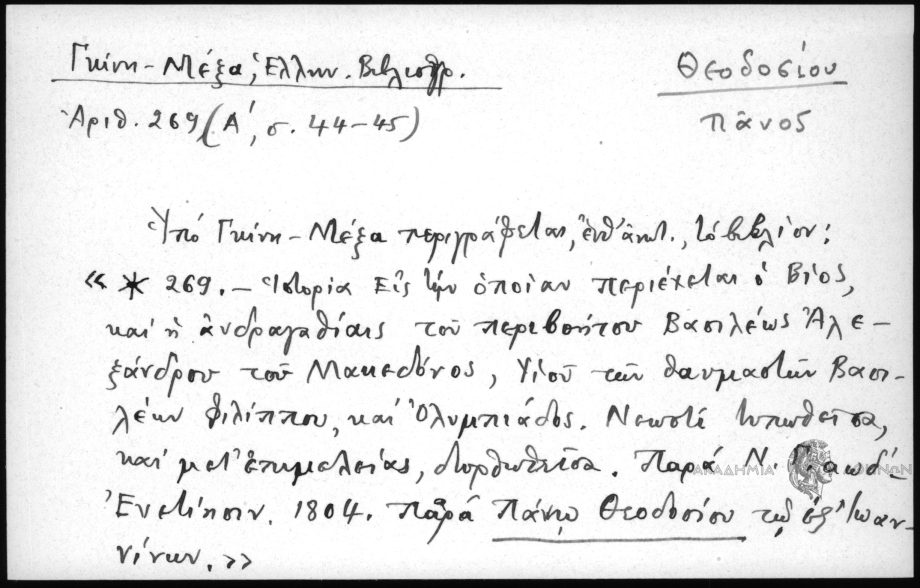 Γκίνη – Μέξα, Ἑλλην. Βιβλιογρ.
Θεοδοσίου
Ἀριθ. 269 (Α΄, σ. 44–45)
Πᾶνος
Ὑπό Γκίνη – Μέξα περιγράφεται, ἐνθ' ἀνωτ., τό βιβλίον:
« * 269. – Ἱστορία Εἰς τὴν ὁποίαν περιέχεται ὁ Βίος,
καί ἡ ἀνδραγαθίαις τοῦ περιβοήτου Βασιλέως Ἀλε–
ξάνδρου τοῦ Μακεδόνος, Υἱοῦ τῶν θαυμαστῶν Βασι–
λέων Φιλίππου, καί Ὀλυμπιάδος. Νεωστί τυπωθεῖσα,
καί μετ' ἐπιμελείας, διορθωθεῖσα. Παρά Ν.
ΑΚΑΔΗΜΙΑ ΑΘΗΝΩΝ
Ἐνετίησιν. 1804. Παρά Πάνῳ Θεοδοσίου τῷ ἐξ Ἰωαν–
νίνων. »